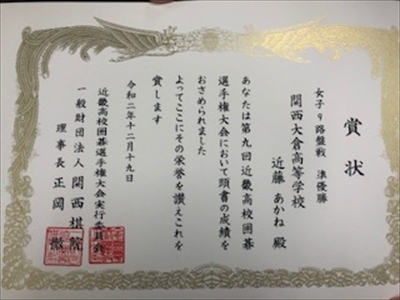 賞状
女子9路盤戦 準優勝
関西大倉高等学校
近藤 あかね 殿
あなたは第九回近畿高校囲碁
選手権大会において頭書の成績を
おさめられました
よってここにその栄誉を讃えこれを
賞します
令和二年十二月十九日
近畿高校囲碁選手権大会実行委員会
一般財団法人 関西棋院
理事長 正岡 徹